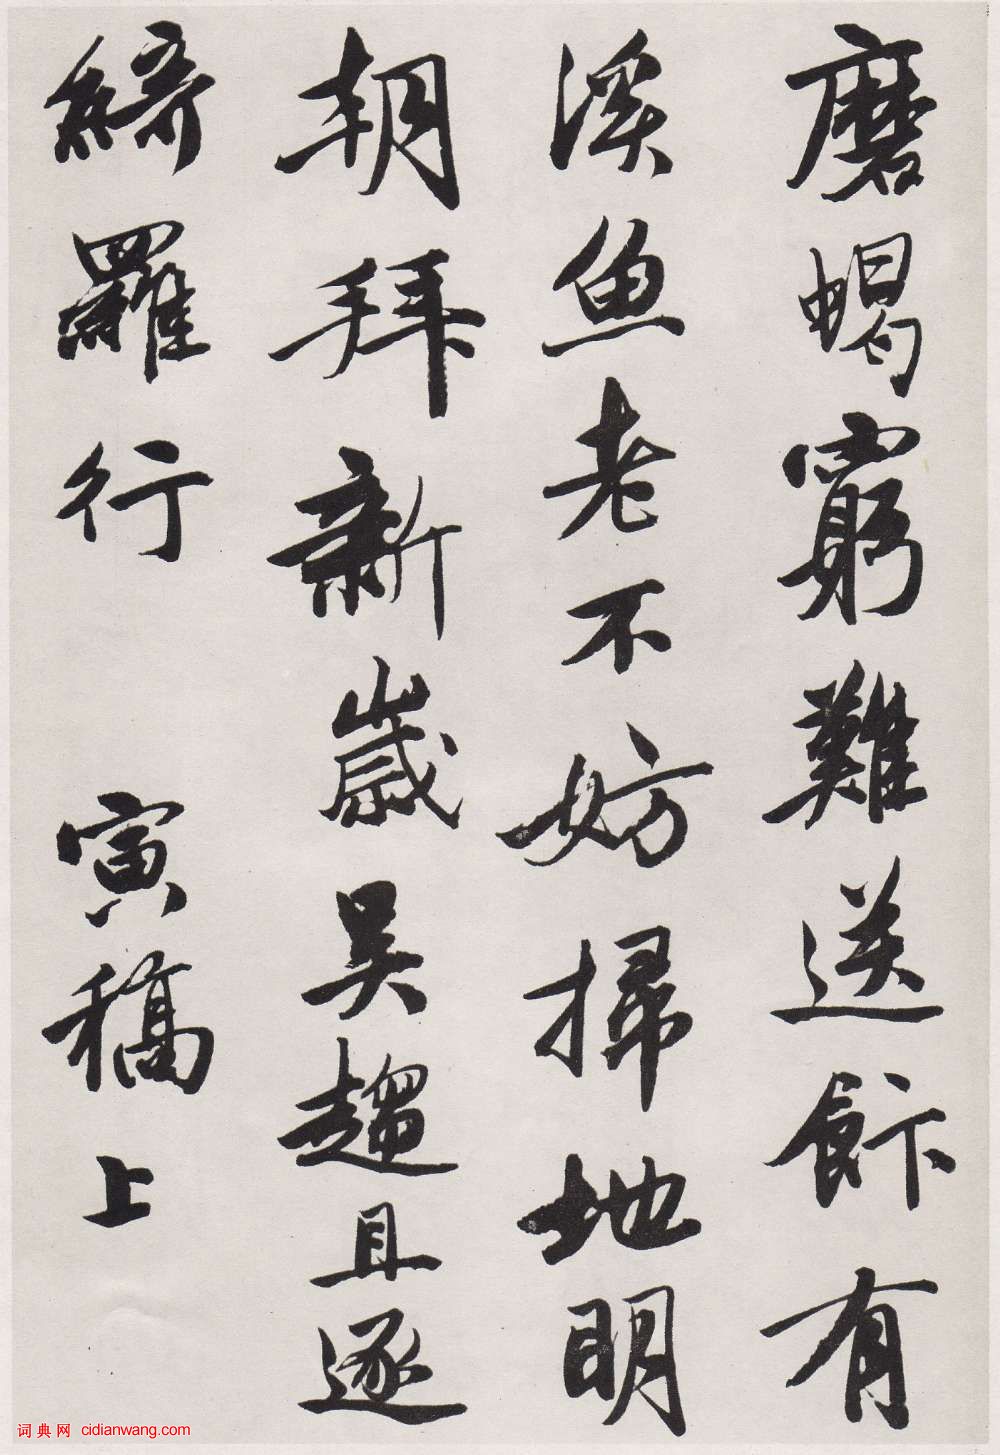 磨蝎窮難送飰有
溪魚老不妨掃地明
朝拜新歲吴趨且逐
綺羅行 寅稿上
词典网 cidianwang.com